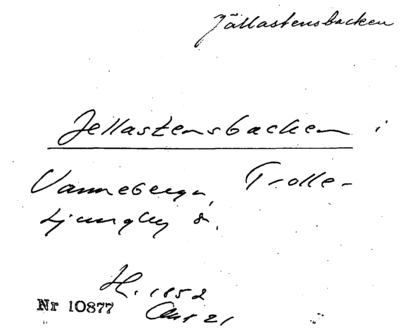 Jällastensbacken
Jellastensbacken i
Vanneberga, Trolle-
Ljungby s.
H. 1852
Nr 10877